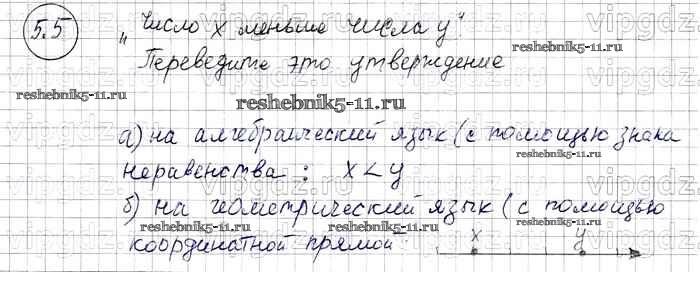 5.5 „Число x меньше числа y“.
Переведите это утверждение
reshebnik5-11.ru
reshebnik5-11.ru
reshebnik5-11.ru
а) на алгебраический язык (с помощью знака
reshebnik5-11.ru
неравенства : x < y
б) на геометрический язык (с помощью
reshebnik5-11.ru
reshebnik5-11.ru
координатной прямой
x y